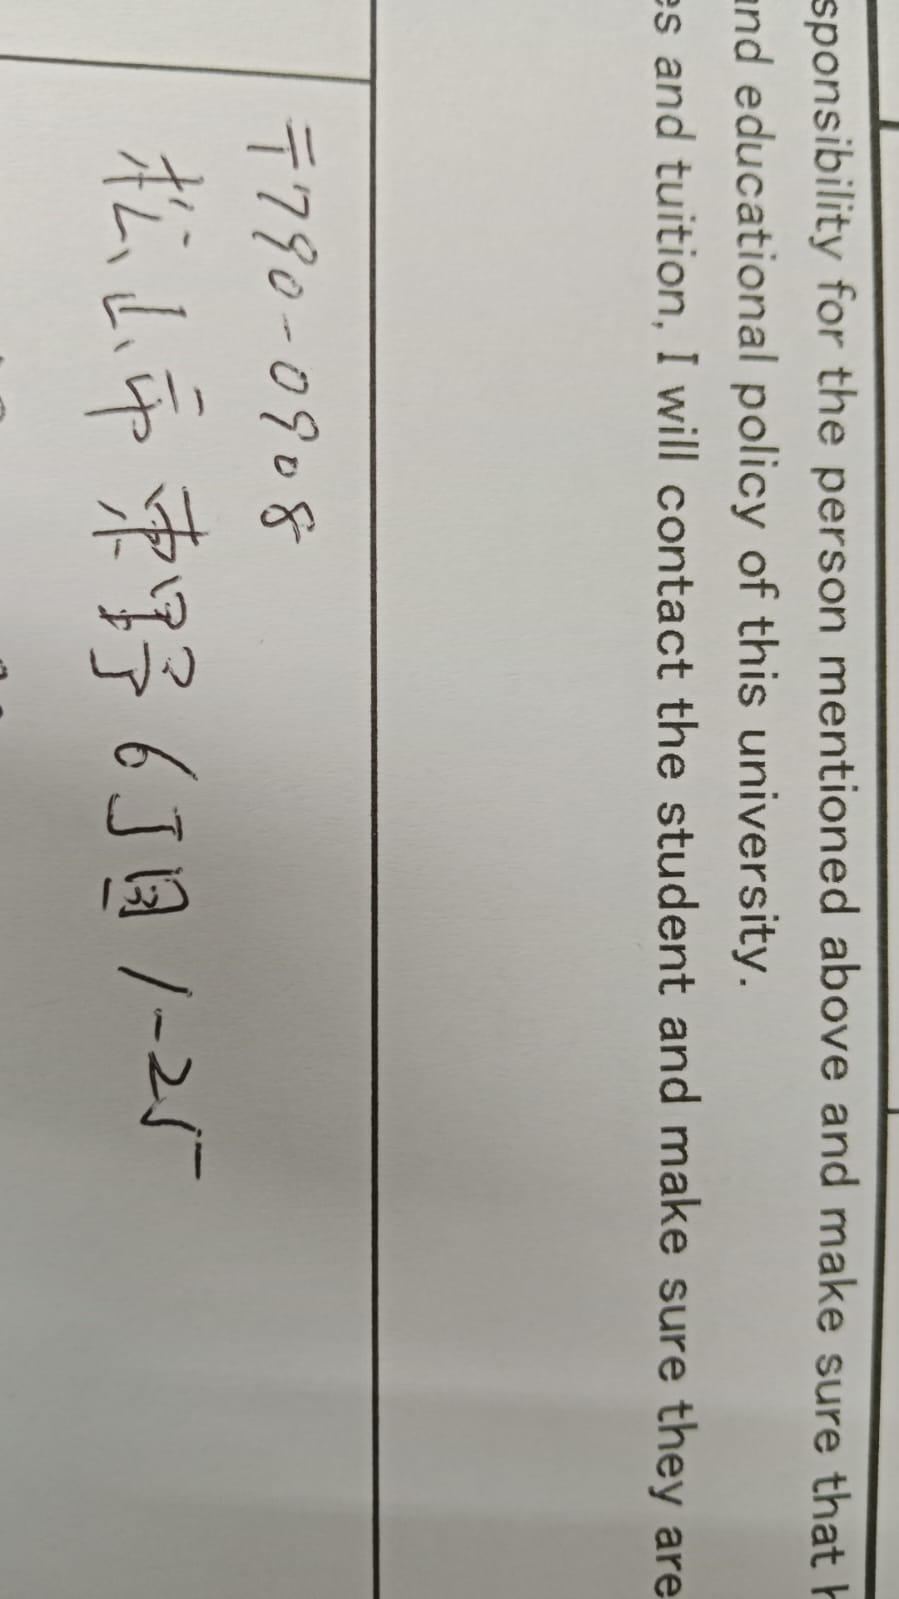 sponsibility for the person mentioned above and make sure that
and educational policy of this university.
es and tuition, I will contact the student and make sure they are
〒790-0908
松山市東野6丁目1-25